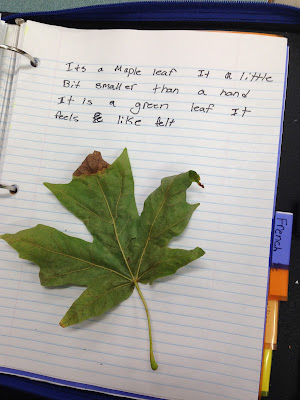 Its a Maple leaf It a little
Bit smaller than a hand
It is a green leaf It
feels like felt
French